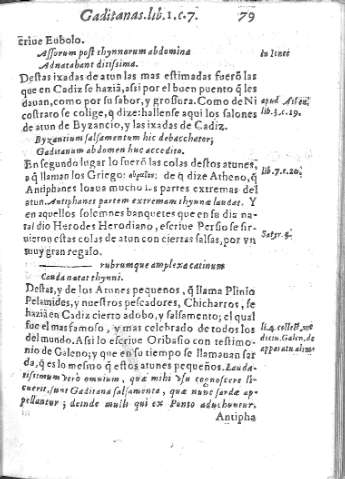 Gaditanas.lib.1.c.7. 79
criue Eubolo.
Assorum post thynnorum abdomina
Adnatabant ditissima.
In Ixnet
Destas ixadas de atun las mas estimadas fuerõ las
que en Cadiz se haziã, asi por el buen puento q̃ les
dauan, como por su sabor, y grossura. Como de Ni
apud Athe
costrato se colige, q̃ dize: hallense aqui los salones
lib.3.c.19.
de atun de Byzancio, y las ixadas de Cadiz.
Byzantium salsamentum hic debacchetur;
Gaditanum abdomen huc accedito.
En segundo lugar lo fuerõ las colas destos atunes,
a q̃ llaman los Griego: de q̃ dize Atheno, q̃
lib.7.c.20.
Antiphanes loaua mucho las partes extremas del
atun. Antiphanes partem extremam thynna laudat. Y
en aquellos solemnes banquetes que en su dia na-
tal dio Herodes Herodiano, escriue Persio se sir-
Satyr.
uieron estas colas de atun con ciertas salsas, por vn
muy gran regalo.
rubrumque amplexa catinum
Cauda natat thynni.
Destas, y de los Atunes pequeños, q̃ llama Plinio
Pelamides, y nuestros pescadores, Chicharros, se
haziã en Cadiz cierto adobo, y salsamento; el qual
fue el mas famoso, y mas celebrado de todos los
li.4. collect.
del mundo. Asi lo escriue Oribasio con testimo-
Galen. de
nio de Galeno; y que en su tiempo se llamauan sar
da, q̃ es lo mesmo q̃ estos atunes pequeños. Lauda-
tissimum vero omnium, quæ mihi vsu cognoscere li-
cuerit, sunt Gaditana salsamenta, quæ nunc sardæ ap-
pellantur; deinde muli qui ex Ponto aduehuntur.
Antipha